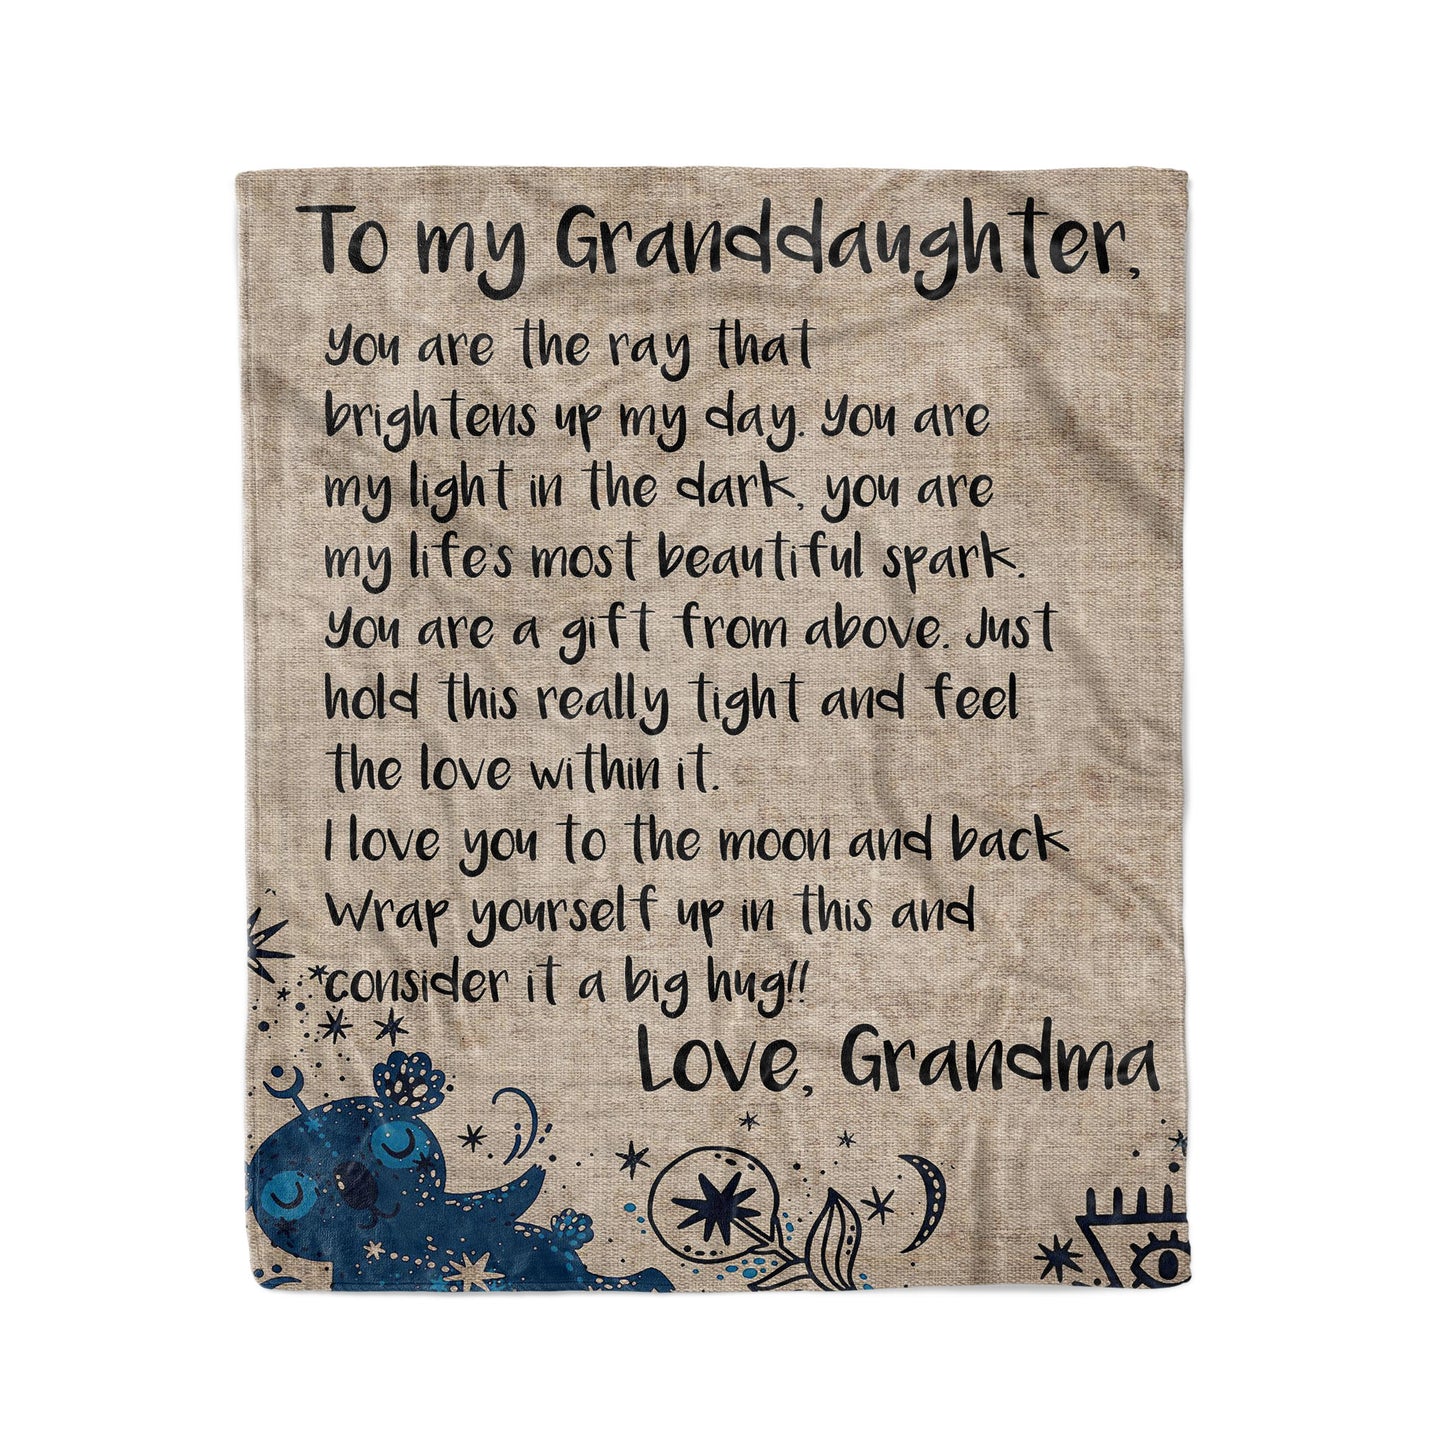 To my Granddaughter,
You are the ray that
brightens up my day. You are
my light in the dark, you are
my life's most beautiful spark.
You are a gift from above. Just
hold this really tight and feel
the love within it.
I love you to the moon and back
Wrap yourself up in this and
consider it a big hug!!
Love, Grandma